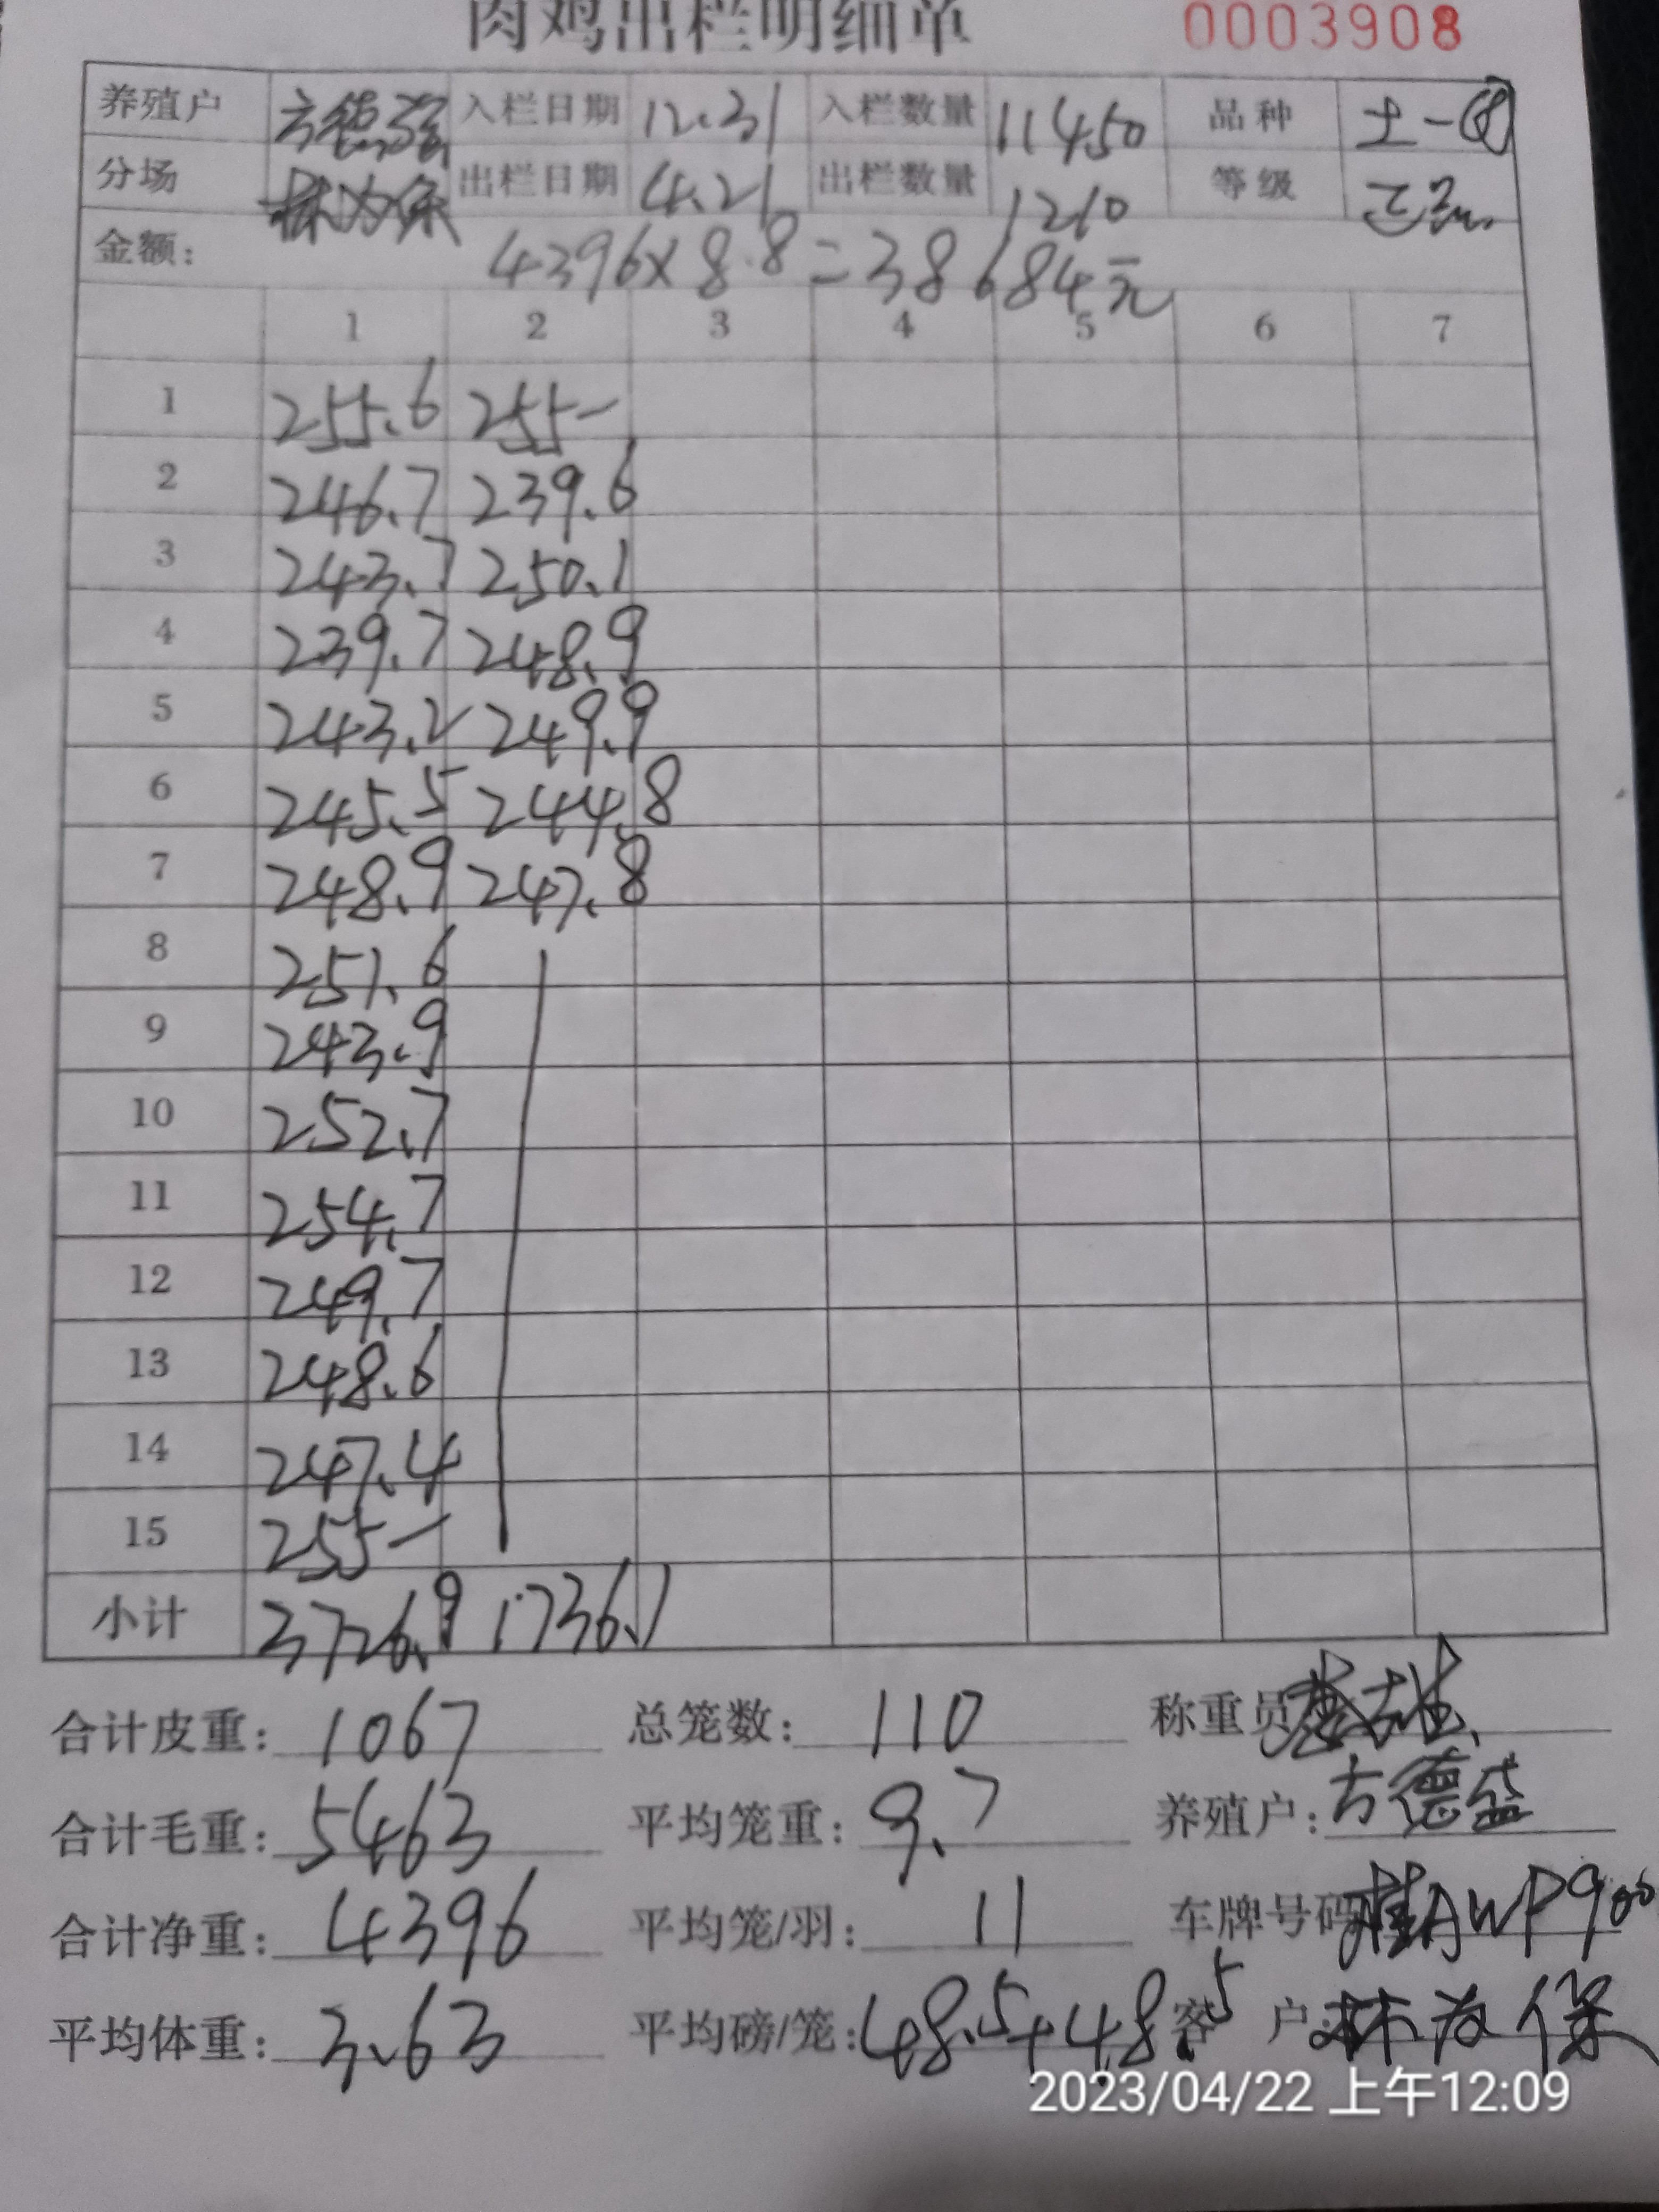 肉鸡出栏明细单 0003908
养殖户 方德盛 入栏日期 12.31 入栏数量 11450 品种 土一
分场 林为保 出栏日期 4.21 出栏数量 1210 等级 正
金额: 4396×8.8=38684元
1 2 3 4 5 6 7
1 255.6 255-
2 246.7 239.6
3 243.7 250.1
4 239.7 248.9
5 243.2 249.9
6 245.5 244.8
7 248.9 247.8
8 251.6
9 243.9
10 252.7
11 254.7
12 249.7
13 248.6
14 247.4
15 255-
小计 3726.9 1736.1
合计皮重: 1067 总笼数: 110 称重员
合计毛重: 5463 平均笼重: 9.7 养殖户: 方德盛
合计净重: 4396 平均笼/羽: 11 车牌号码 桂AWP900
平均体重: 3.63 平均磅/笼: 48.5+48.5 客户 林为保
2023/04/22 上午12:09